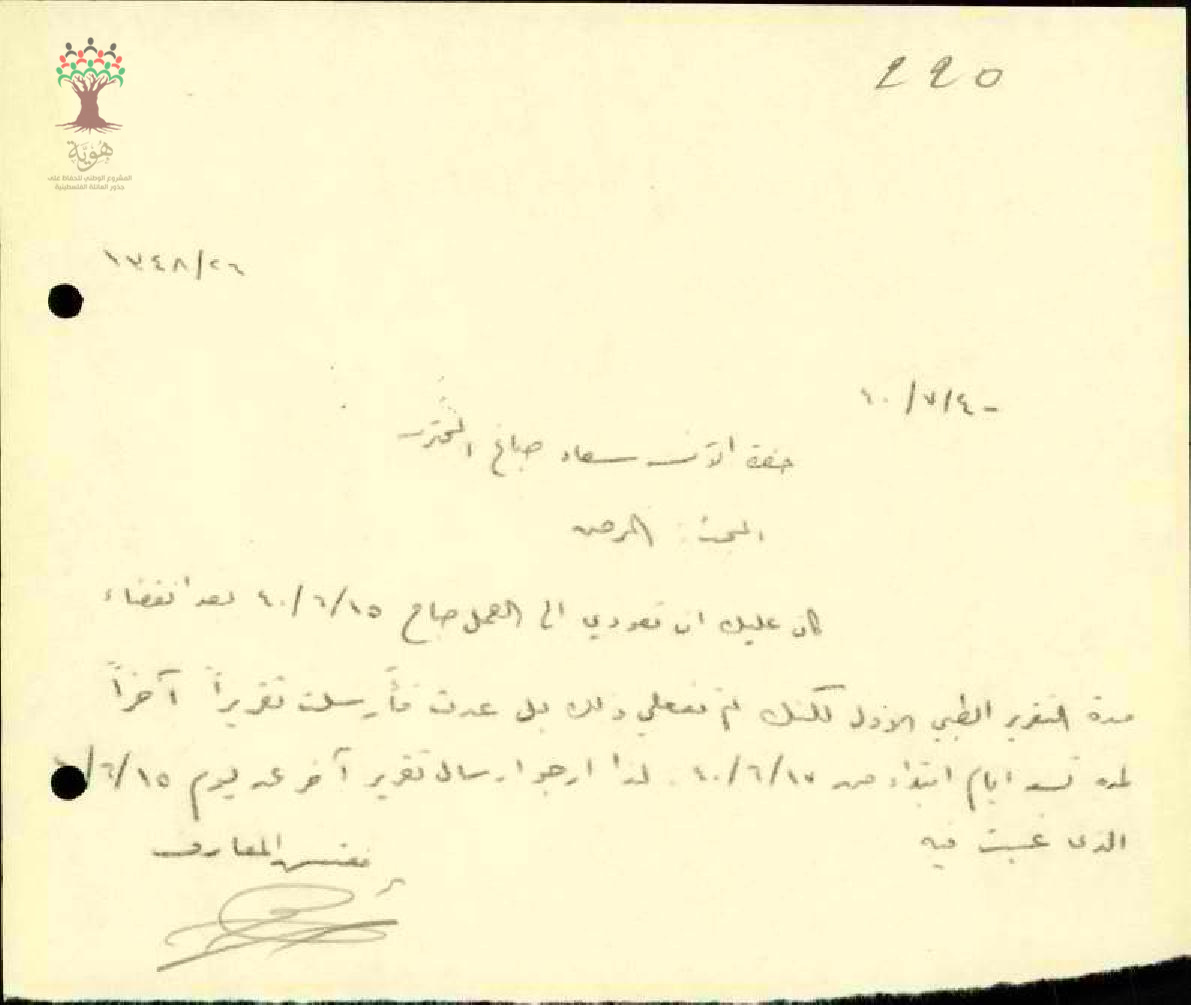 220
هوية
المشروع الوطني للحفاظ على
جذور العائلة الفلسطينية
١٧٤٨/٢٦
٤٠/٧/٤ -
حضرة الآنسة سعاد صباغ المحترمة
البحث: المرض
كان عليك ان تعودي الى العمل صباح ٤٠/٦/١٥ بعد انقضاء
مدة التقرير الطبي الاول لكنك لم تفعلي ذلك بل عدت فأرسلت تقريراً آخراً
لمدة ايام ابتداء من ٤٠/٦/١٧. لذا ارجو ارسال تقرير آخر عن يوم ٦/١٥/
الذي غبت فيه
مفتش المعارف